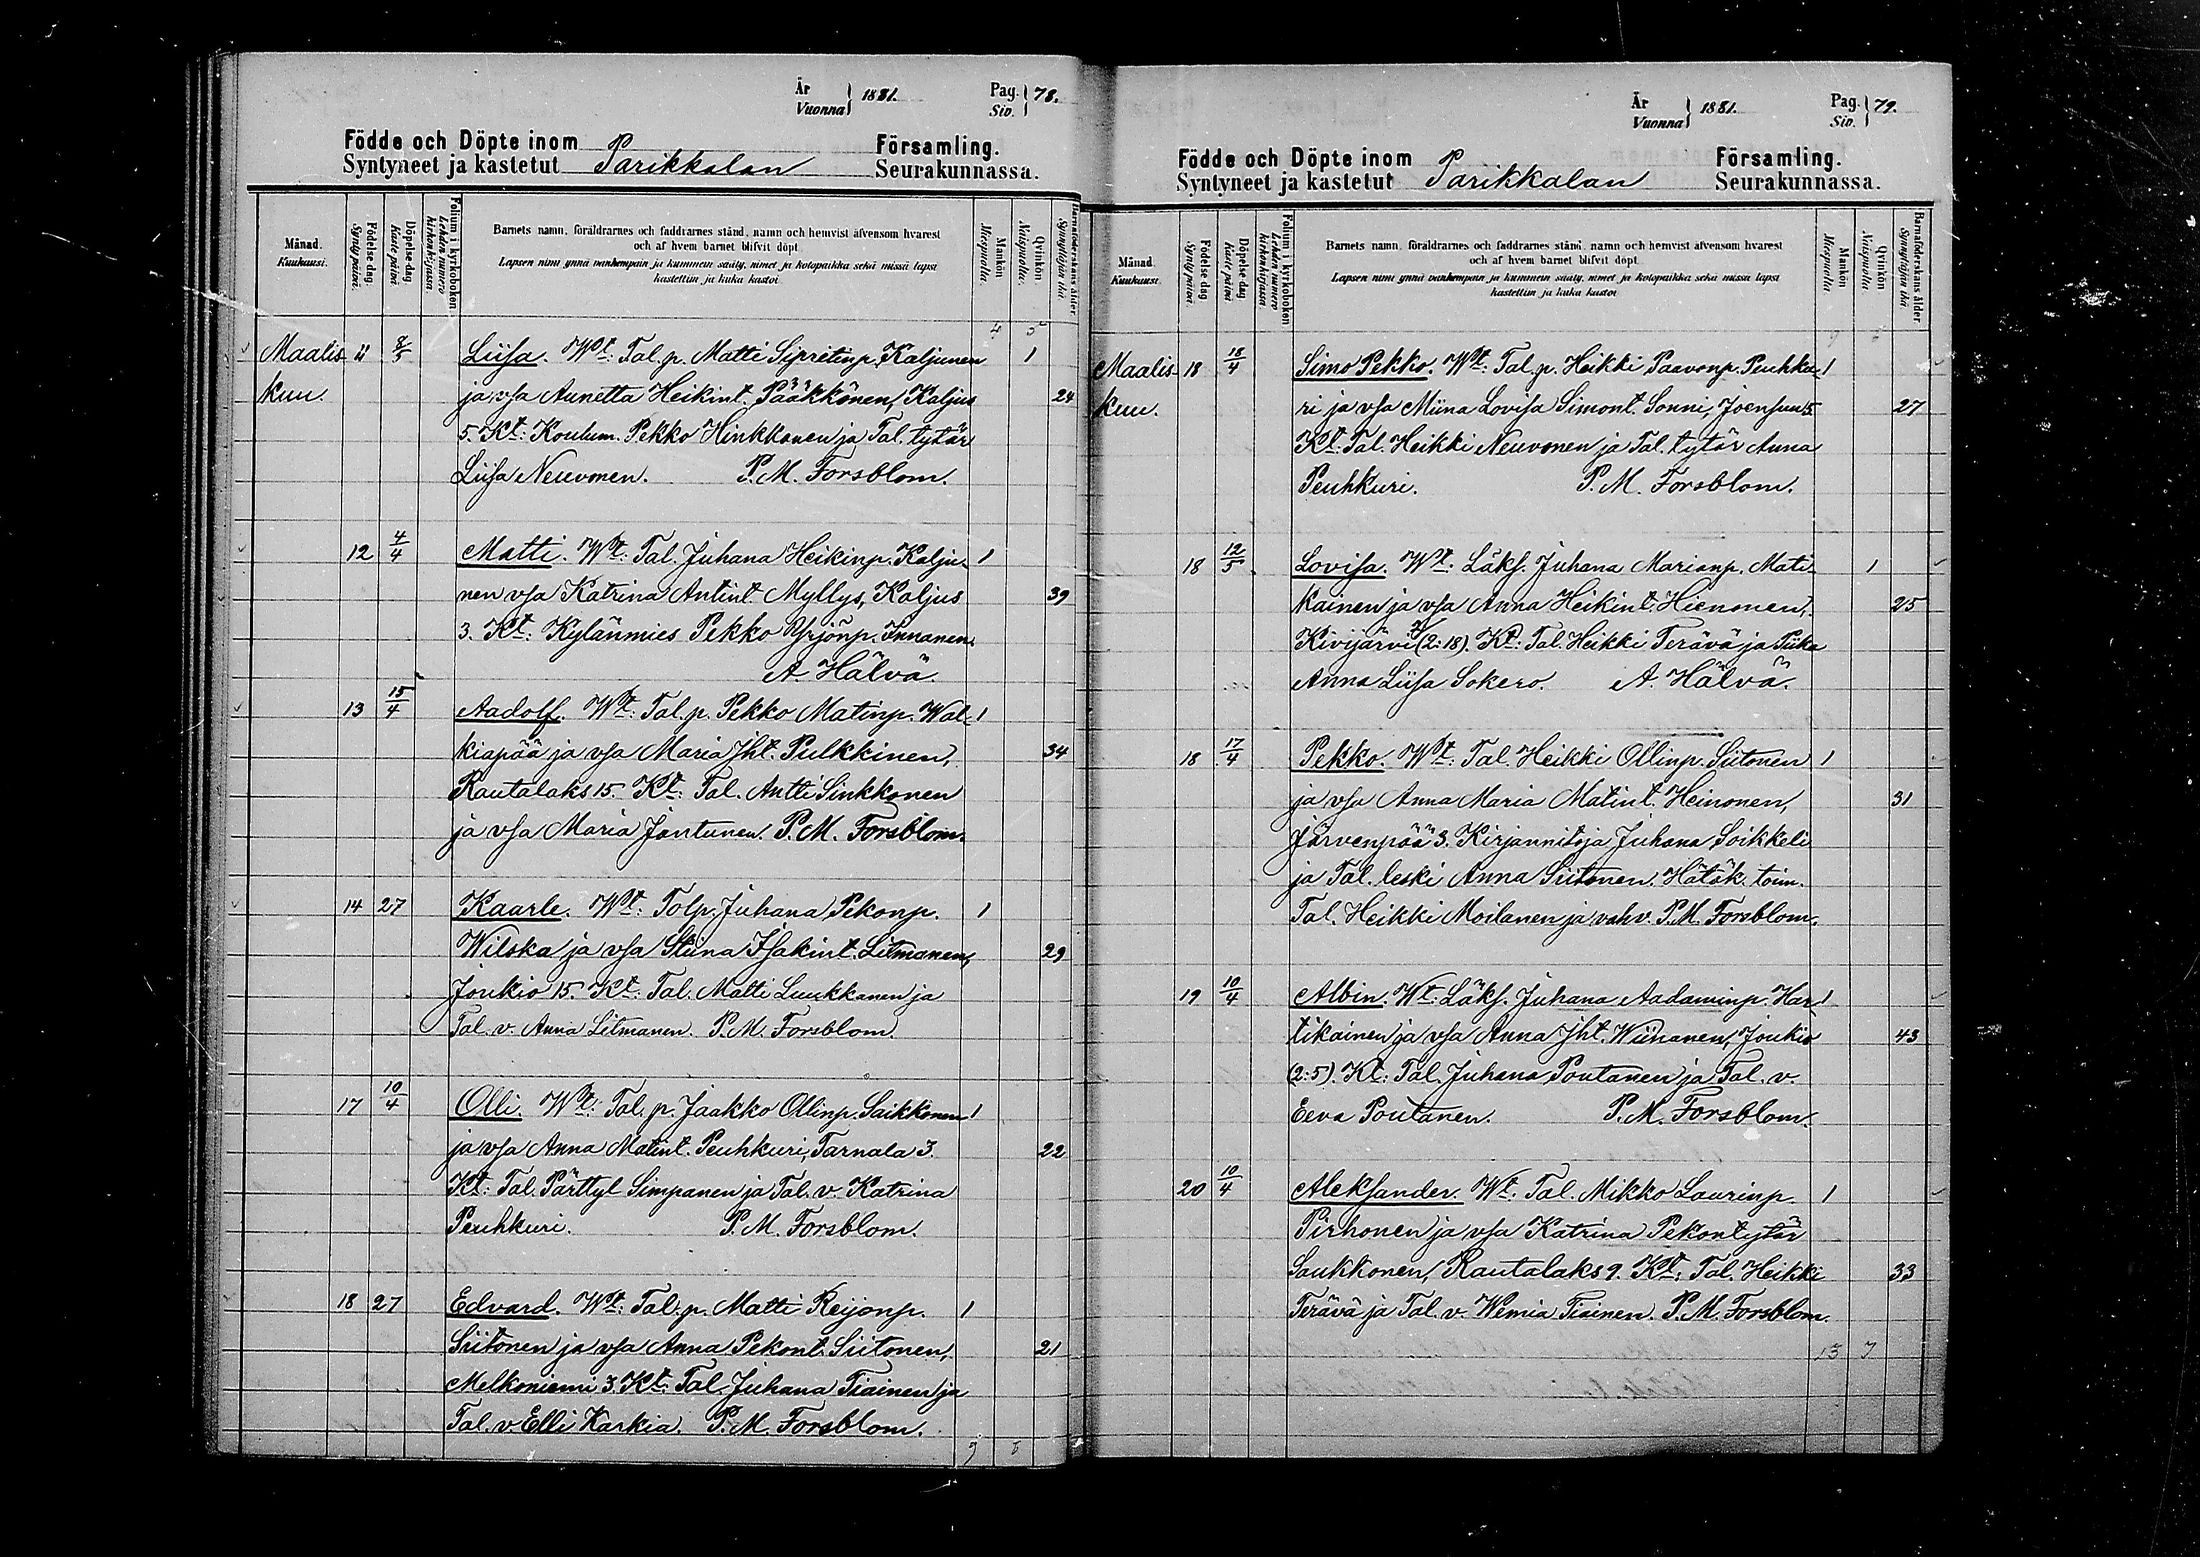 År
Vuonna } 1881.
Pag.
Siv. } 78.
Födde och Döpte inom
Syntyneet ja kastetut Parikkalan
Församling.
Seurakunnassa.
Månad.
Kuukausi.
Födelse dag.
Syntypäivä.
Döpelse dag
Kaste päivä
Folium i kyrkoboken
Lehden numero
kirkonkirjassa.
Barnets namn, föräldrarnes och faddrarnes stånd, namn och hemvist äfvensom hvarest
och af hvem barnet blifvit döpt
Lapsen nimi ynnä vanhempain ja kummein sääty, nimet ja kotopaikka sekä missä lapsi
kastettiin ja kuka kastoi
Mankön
Miespuolia.
Qvinkön
Naispuolia.
Barnaföderskans ålder
Synnyttäjän ikä
4 5
Maalis- 11 8/5 Liisa. Wt: Tal. p. Matti Sipritinp. Kaljunen 1
kuu. ja vsa Annetta Heikint. Pääkkönen, Kaljus 24
5. Kt: Koulum. Pekko Hinkkanen ja Tal. tytär
Liisa Neuvonen. P. M. Forsblom.
12 4/4 Matti. Wt: Tal. Juhana Heikinp. Kalju- 1
nen vsa Katrina Antint. Myllys, Kaljus 39
3. Kt: Kylänmies Pekko Yrjönp. Innanen.
A. Hälvä.
13 15/4 Aadolf. Wt: Tal. p. Pekko Matinp. Wal- 1
kiapää ja vsa Maria Jht. Pulkkinen, 34
Rautalaks 15. Kt: Tal. Antti Sinkkonen
ja vsa Maria Jantunen. P. M. Forsblom.
14 27 Kaarle. Wt: Tolp. Juhana Pekonp. 1
Wilska ja vsa Stiina Isakint. Litmanen, 29
Joukio 15. Kt: Tal. Matti Luukkanen ja
Tal. v. Anna Litmanen. P. M. Forsblom.
17 10/4 Olli. Wt: Tal. p. Jaakko Ollinp. Saikkonen 1
ja vsa Anna Matint. Peuhkuri, Tarnala 3. 22
Kt: Tal. Pärttyl Simpanen ja Tal. v. Katrina
Peuhkuri. P. M. Forsblom.
18 27 Edvard. Wt: Tal. p. Matti Reijonp. 1
Siitonen ja vsa Anna Pekont. Siitonen, 21
Melkoniemi 3. Kt: Tal. Juhana Tiainen ja
Tal. v. Elli Karkia. P. M. Forsblom.
År
Vuonna } 1881.
Pag.
Siv. } 79.
Födde och Döpte inom
Syntyneet ja kastetut Parikkalan
Församling.
Seurakunnassa.
Månad.
Kuukausi.
Födelse dag
Syntypäivä.
Döpelse dag
Kaste päivä
Folium i kyrkoboken
Lehden numero
kirkonkirjassa.
Barnets namn, föräldrarnes och faddrarnes stånd, namn och hemvist äfvensom hvarest
och af hvem barnet blifvit döpt
Lapsen nimi ynnä vanhempain ja kummein sääty, nimet ja kotopaikka sekä missä lapsi
kastettiin ja kuka kastoi
Mankön
Miespuolia
Qvinkön
Naispuolia
Barnaföderskans ålder
Synnyttäjän ikä
Maalis- 18 18/4 Simo Pekko. Wt: Tal. p. Heikki Paavonp. Peuhku- 1
kuu. ri ja vsa Miina Lovisa Simont. Sonni, Joensuu 5. 27
Kt: Tal. Heikki Neuvonen ja Tal. tytär Anna
Peuhkuri. P. M. Forsblom.
18 12/5 Lovisa. Wt: Läks. Juhana Marianp. Mati- 1
kainen ja vsa Anna Heikint. Hienonen, 25
Kivijärvi (2:18). Kt: Tal. Heikki Terävä ja Piika
Anna Liisa Sokero. A. Hälvä.
18 17/4 Pekko. Wt: Tal. Heikki Ollinp. Siitonen 1
ja vsa Anna Maria Matint. Heinonen, 31
Järvenpää 3. Kirjannitoja Juhana Soikkeli
ja Tal. leski Anna Siitonen. Hätäk. toim.
Tal. Heikki Moilanen ja vahv. P. M. Forsblom.
19 10/4 Albin. Wt: Läks. Juhana Aadaminp. Har- 1
tikainen ja vsa Anna Jht. Wiihanen, Joukio 43
(2:5). Kt: Tal. Juhana Poutanen ja Tal. v.
Eeva Poutanen. P. M. Forsblom.
20 10/4 Aleksander. Wt. Tal. Mikko Laurinp. 1
Pirhonen ja vsa Katrina Pekontytär
Saukkonen, Rautalaks 9. Kt: Tal. Heikki 33
Terävä ja Tal. v. Wemia Tiainen. P. M. Forsblom.
13 7